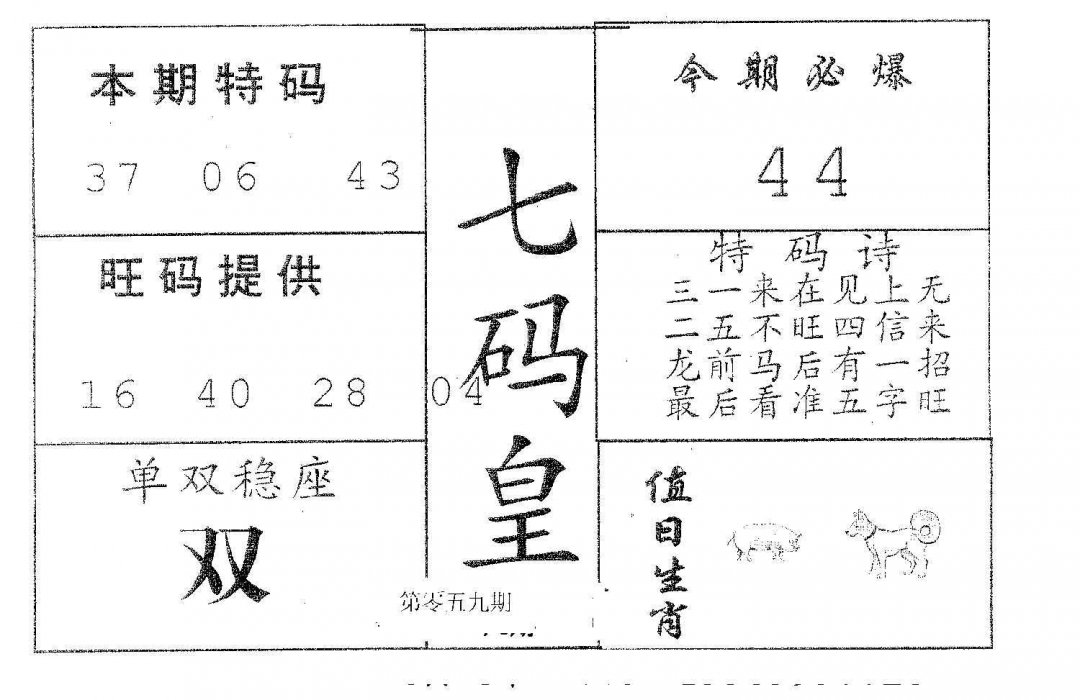 本期特码
37 06 43
旺码提供
16 40 28 04
单双稳座
双
七码皇
第零五九期
今期必爆
44
特码诗
三一来在见上无
二五不旺四信来
龙前马后有一招
最后看准五字旺
值日生肖